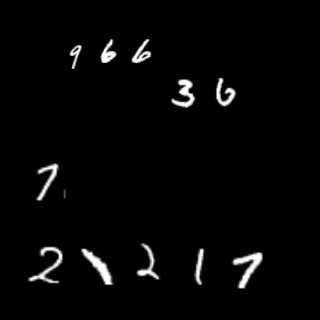 966
36
71
21217